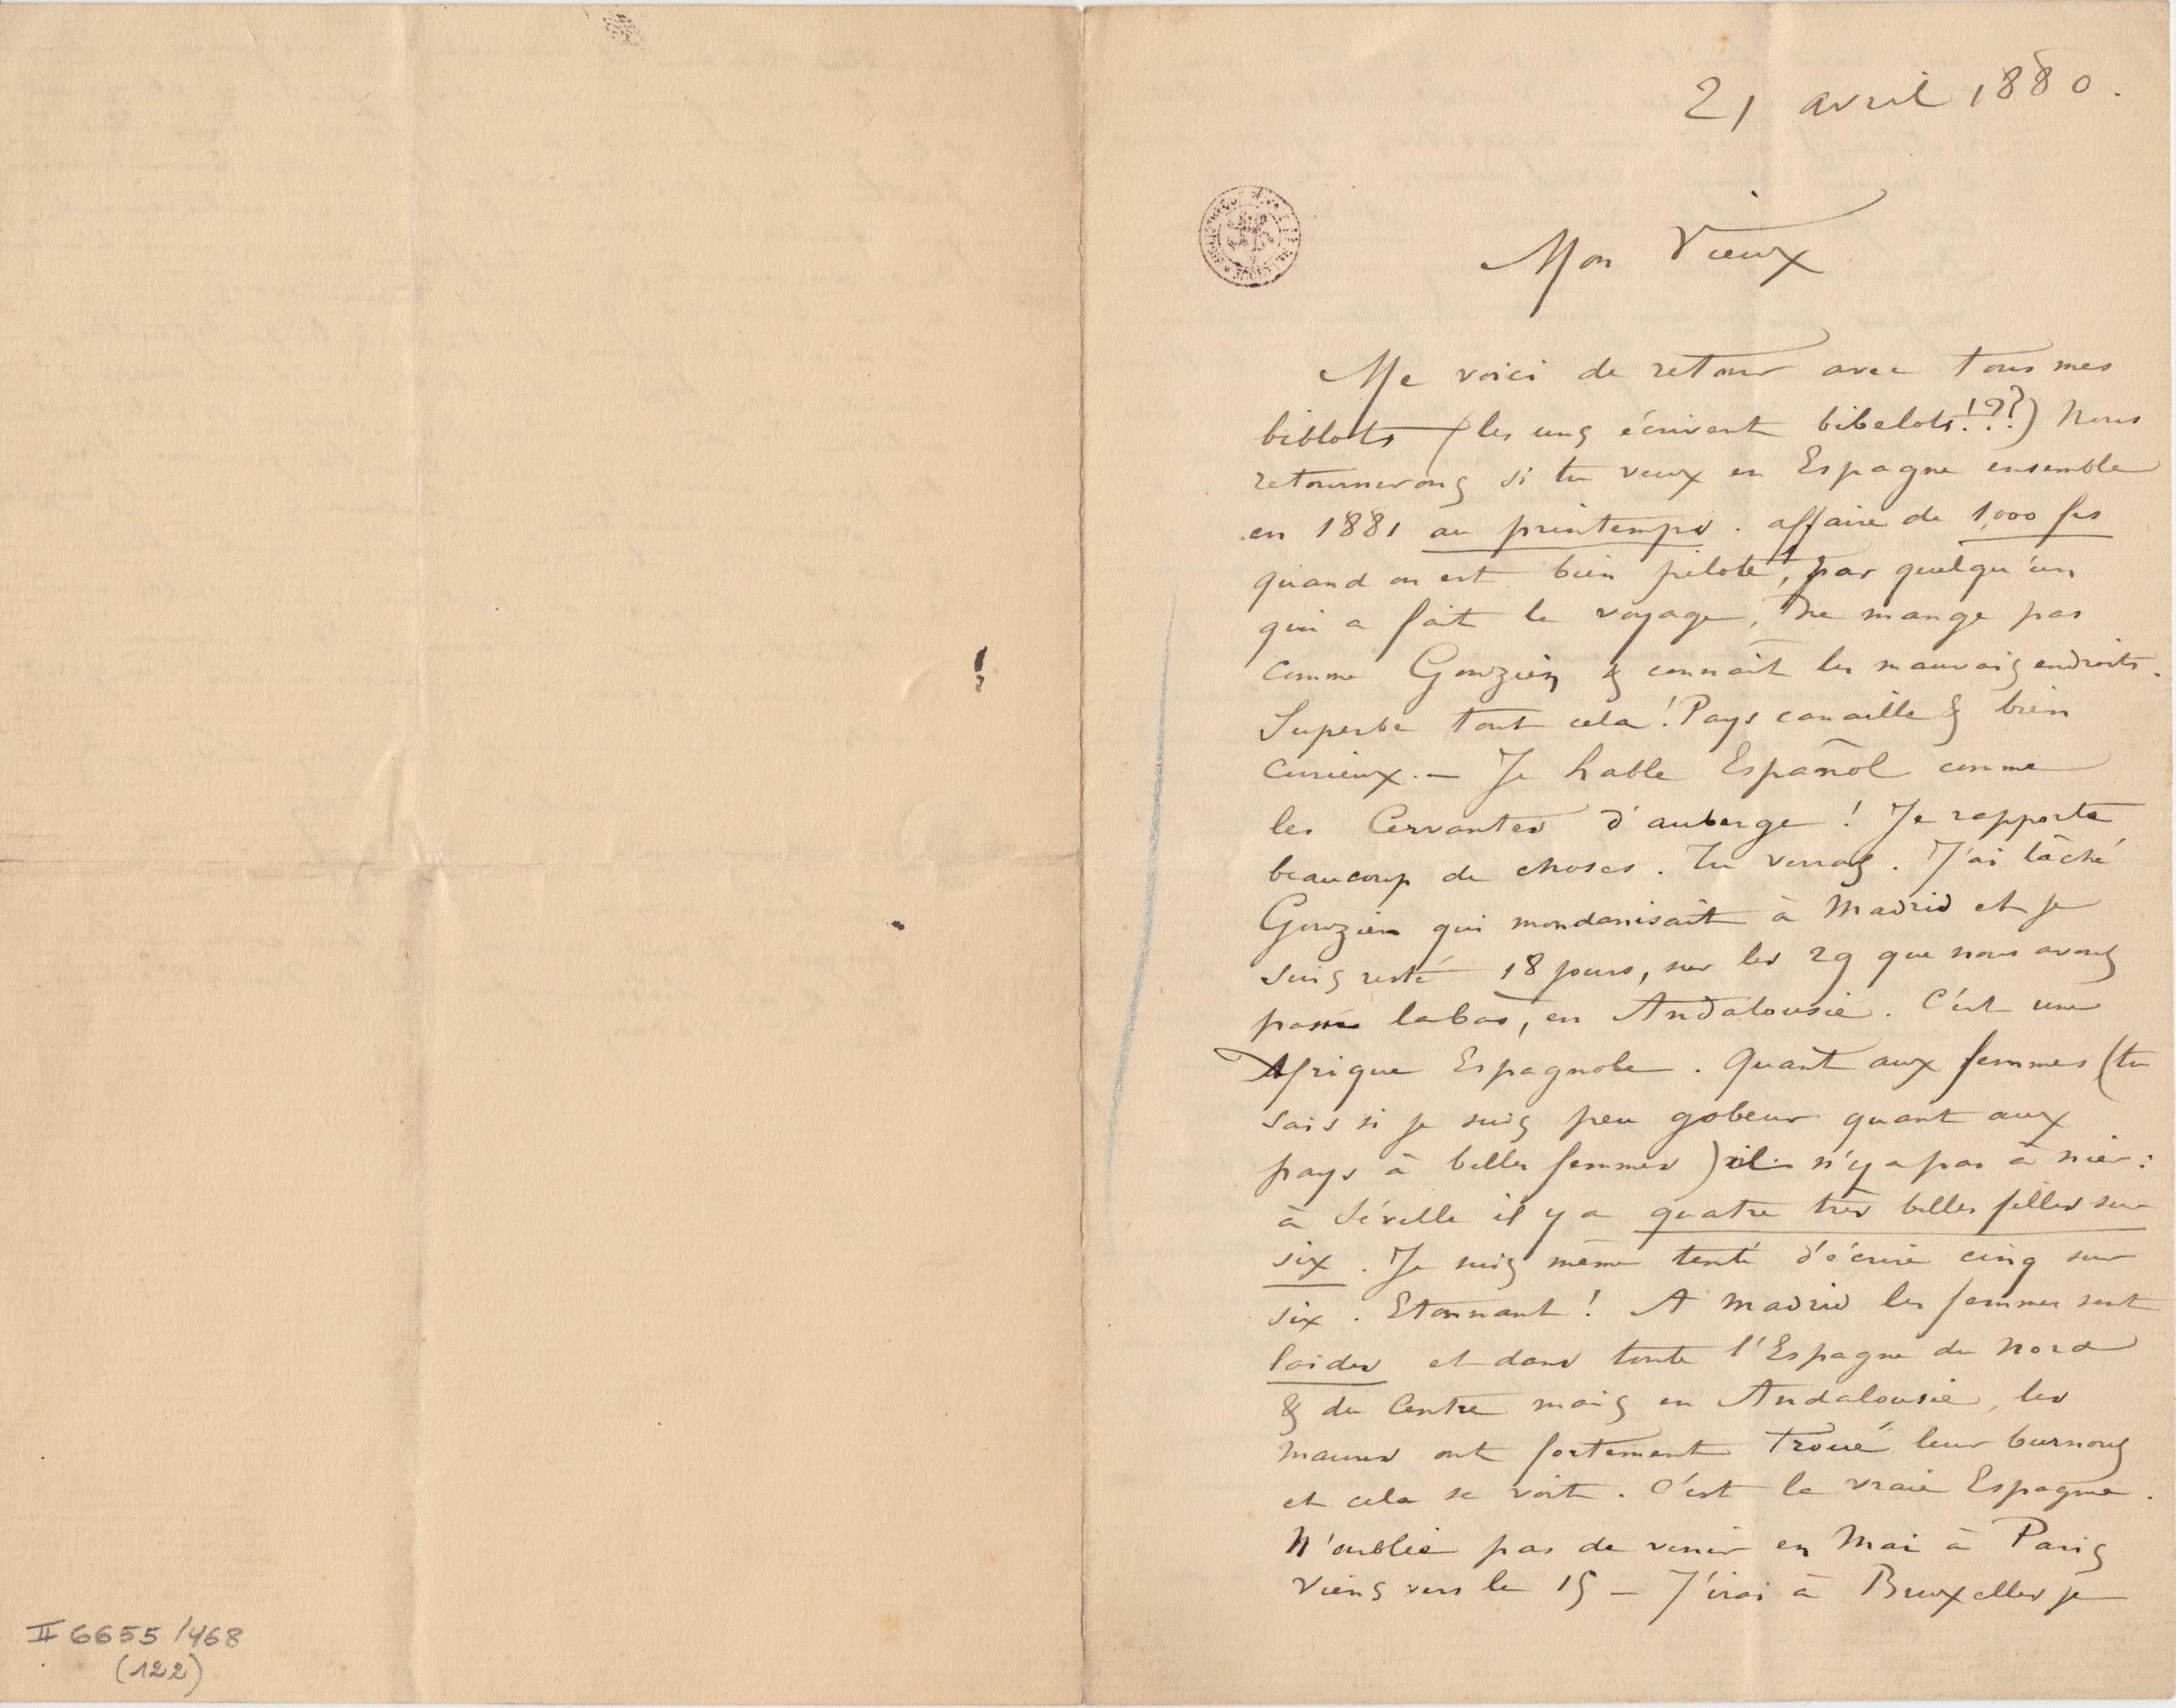 21 avril 1880.
Mon Vieux
Me voici de retour avec tous mes
biblots (les uns écrivent bibelots!??) Nous
retournerons si tu veux en Espagne ensemble
en 1881 au printemps. affaire de 1,000 frs
quand on est bien piloté, par quelqu'un
qui a fait le voyage, ne mange pas
comme Gouzien & connait les mauvais endroits.
Superbe tout cela! Pays canaille & bien
curieux. – Je hable Español comme
les Cervantes d'auberge! Je rapporte
beaucoup de choses. Tu verras. J'ai lâché
Gouzien qui mondanisait à Madrid et je
suis resté 18 jours, sur les 29 que nous avons
passés labas, en Andalousie. C'est une
Afrique Espagnole. Quant aux femmes (tu
sais si je suis peu gobeur quant aux
pays à belles femmes) il n'y a pas à nier:
à Séville il y a quatre très belles filles sur
six. Je suis même tenté d'écrire cinq sur
six. Etonnant! A Madrid les femmes sont
laides et dans toute l'Espagne du Nord
& du Centre mais en Andalousie, les
maures ont fortement troué leur burnous
et cela se voit. C'est la vraie Espagne.
N'oublie pas de venir en Mai à Paris
viens vers le 15 – J'irai à Bruxelles je
II 6655/468
(122)